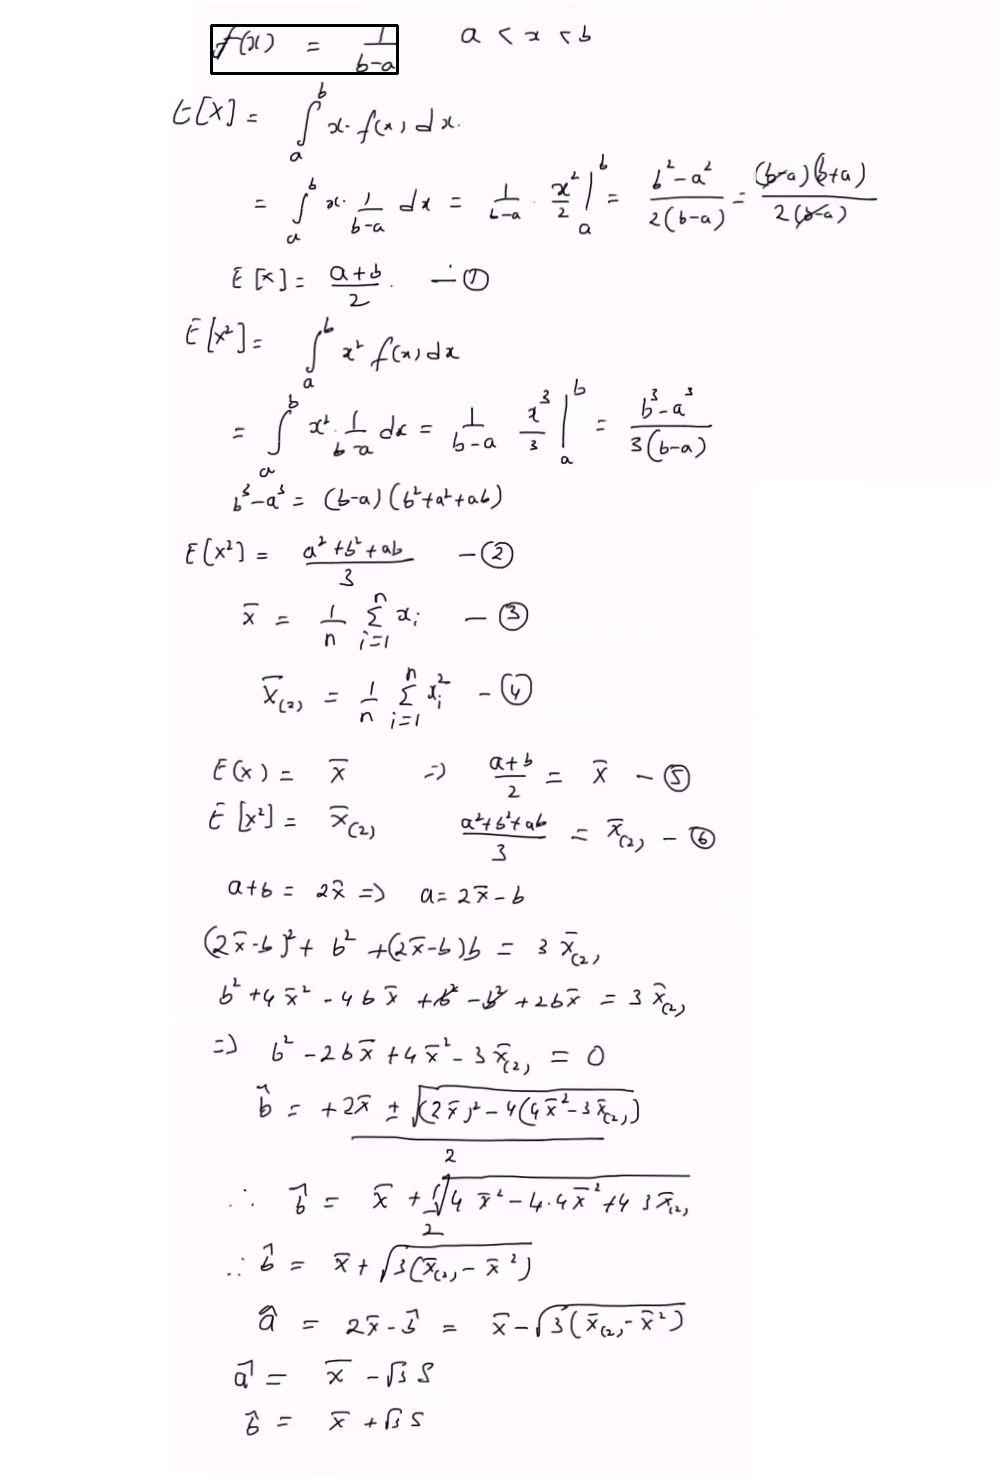 f(x) = 1/(b-a)    a < x < b
E[X] = ∫_a^b x · f(x) dx.
= ∫_a^b x · 1/(b-a) dx = 1/(b-a) · x²/2 |_a^b = (b²-a²)/(2(b-a)) = ((b-a)(b+a))/(2(b-a))
E[x] = (a+b)/2 . — ①
E[x²] = ∫_a^b x² f(x) dx
= ∫_a^b x² · 1/(b-a) dx = 1/(b-a) x³/3 |_a^b = (b³-a³)/(3(b-a))
b³-a³ = (b-a)(b²+a²+ab)
E[x²] = (a²+b²+ab)/3 — ②
x̄ = 1/n Σ_{i=1}^n x_i — ③
x̄_(2) = 1/n Σ_{i=1}^n x_i² — ④
E(x) = x̄ ⇒ (a+b)/2 = x̄ — ⑤
E[x²] = x̄_(2)    (a²+b²+ab)/3 = x̄_(2) — ⑥
a+b = 2x̄ ⇒ a = 2x̄-b
(2x̄-b)² + b² + (2x̄-b)b = 3 x̄_(2)
b² + 4x̄² - 4bx̄ + b² - b² + 2bx̄ = 3 x̄_(2)
⇒ b² - 2bx̄ + 4x̄² - 3x̄_(2) = 0
b̂ = (+2x̄ ± √((2x̄)² - 4(4x̄² - 3x̄_(2))))/2
∴ b̂ = x̄ + √(4x̄² - 4·4x̄² + 4 3x̄_(2))/2
∴ b̂ = x̄ + √(3(x̄_(2) - x̄²))
â = 2x̄ - b̂ = x̄ - √(3(x̄_(2) - x̄²))
â = x̄ - √3 S
b̂ = x̄ + √3 S